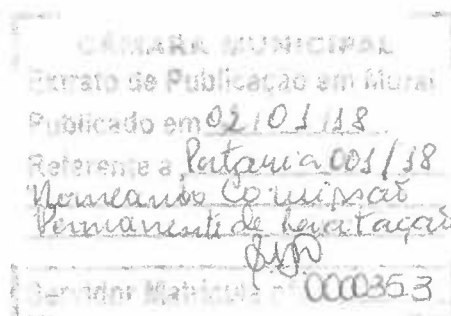 CÂMARA MUNICIPAL
Extrato de Publicação em Mural
Publicado em 02/01/18
Referente a Portaria 001/18
Nomeando Comissão
Permanente de Licitação
Servidor Matrícula nº 0000353